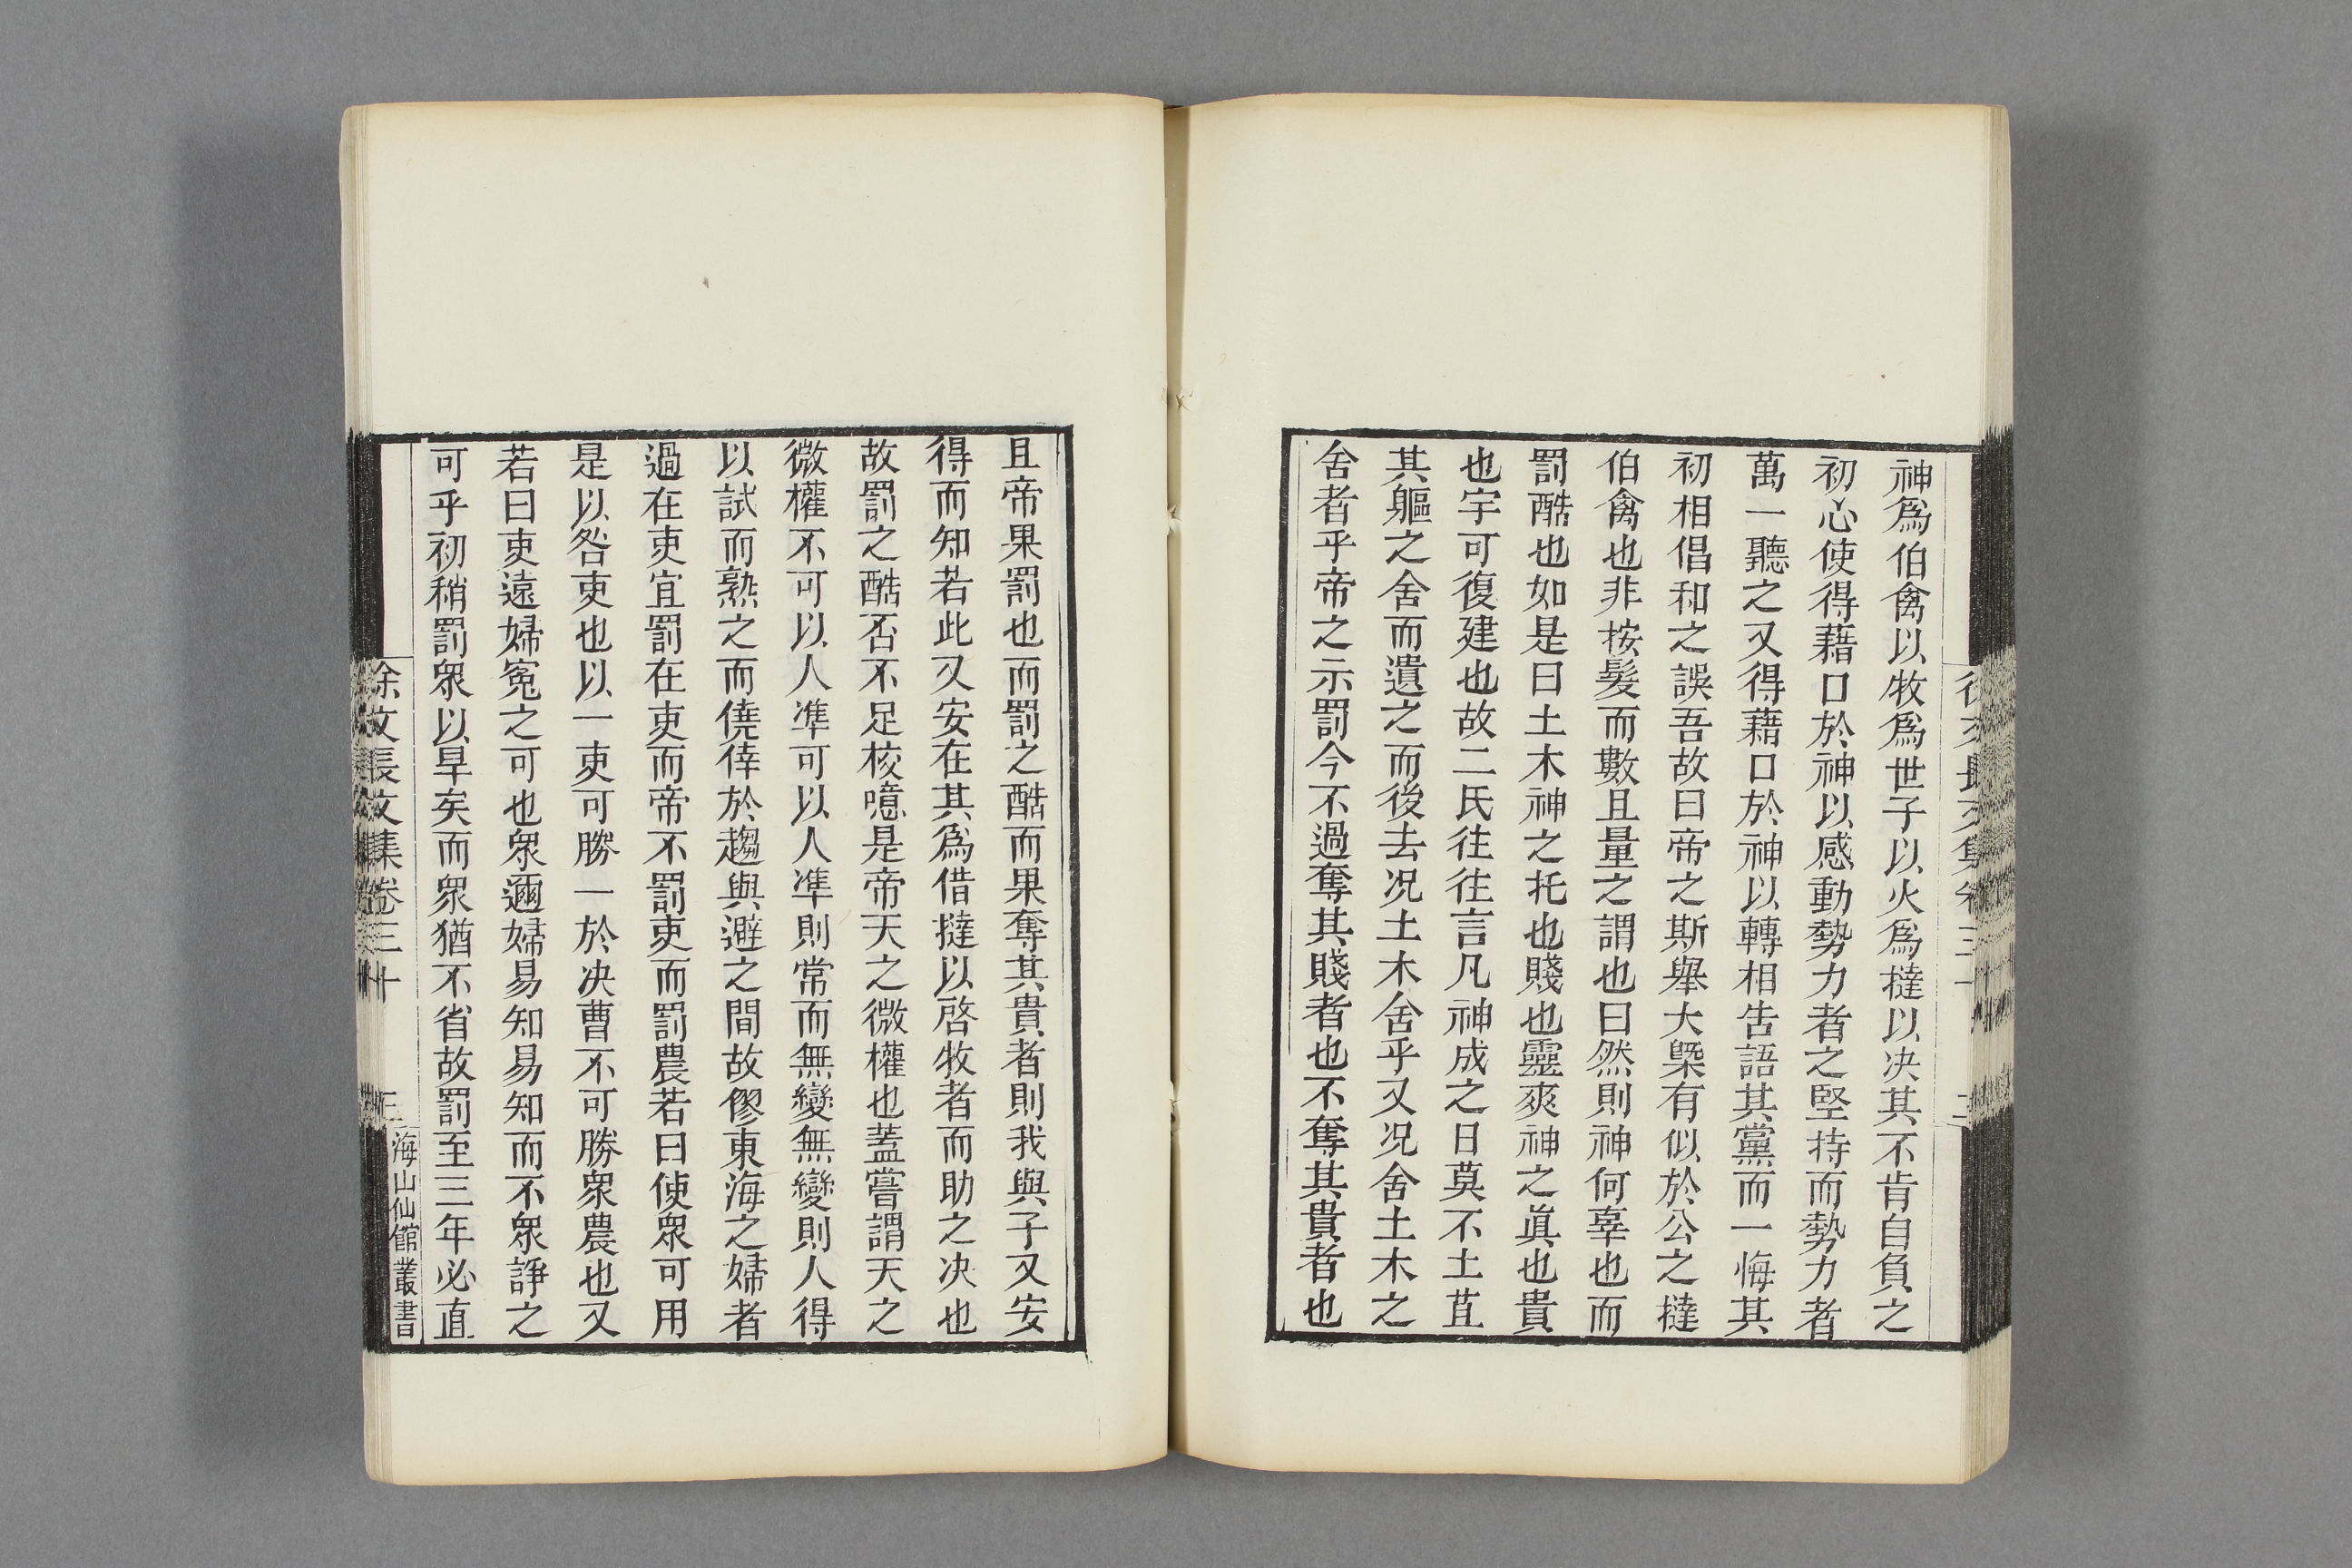 神爲伯禽以牧爲世子以火爲撻以决其不肯自負之
初心使得藉口於神以感動勢力者之堅持而勢力者
萬一聽之又得藉口於神以轉相告語其黨而一悔其
初相倡和之誤吾故曰帝之斯舉大槩有似於公之撻
伯禽也非按髮而數且量之謂也曰然則神何辜也而
罰酷也如是曰土木神之托也賤也靈爽神之眞也貴
也宇可復建也故二氏往往言凡神成之日莫不土苴
其軀之舍而遺之而後去况土木舍乎又况舍土木之
舍者乎帝之示罰今不過奪其賤者也不奪其貴者也
且帝果罰也而罰之酷而果奪其貴者則我與子又安
得而知若此又安在其爲借撻以啓牧者而助之决也
故罰之酷否不足核噫是帝天之微權也蓋嘗謂天之
微權不可以人凖可以人凖則常而無變無變則人得
以試而熟之而僥倖於趨與避之間故僇東海之婦者
過在吏宜罰在吏而帝不罰吏而罰農若曰使衆可用
是以咎吏也以一吏可勝一於决曹不可勝衆農也又
若曰吏遠婦寃之可也衆邇婦易知易知而不衆諍之
可乎初稍罰衆以旱矣而衆猶不省故罰至三年必直
徐文長文集卷三十
三
海山仙館叢書